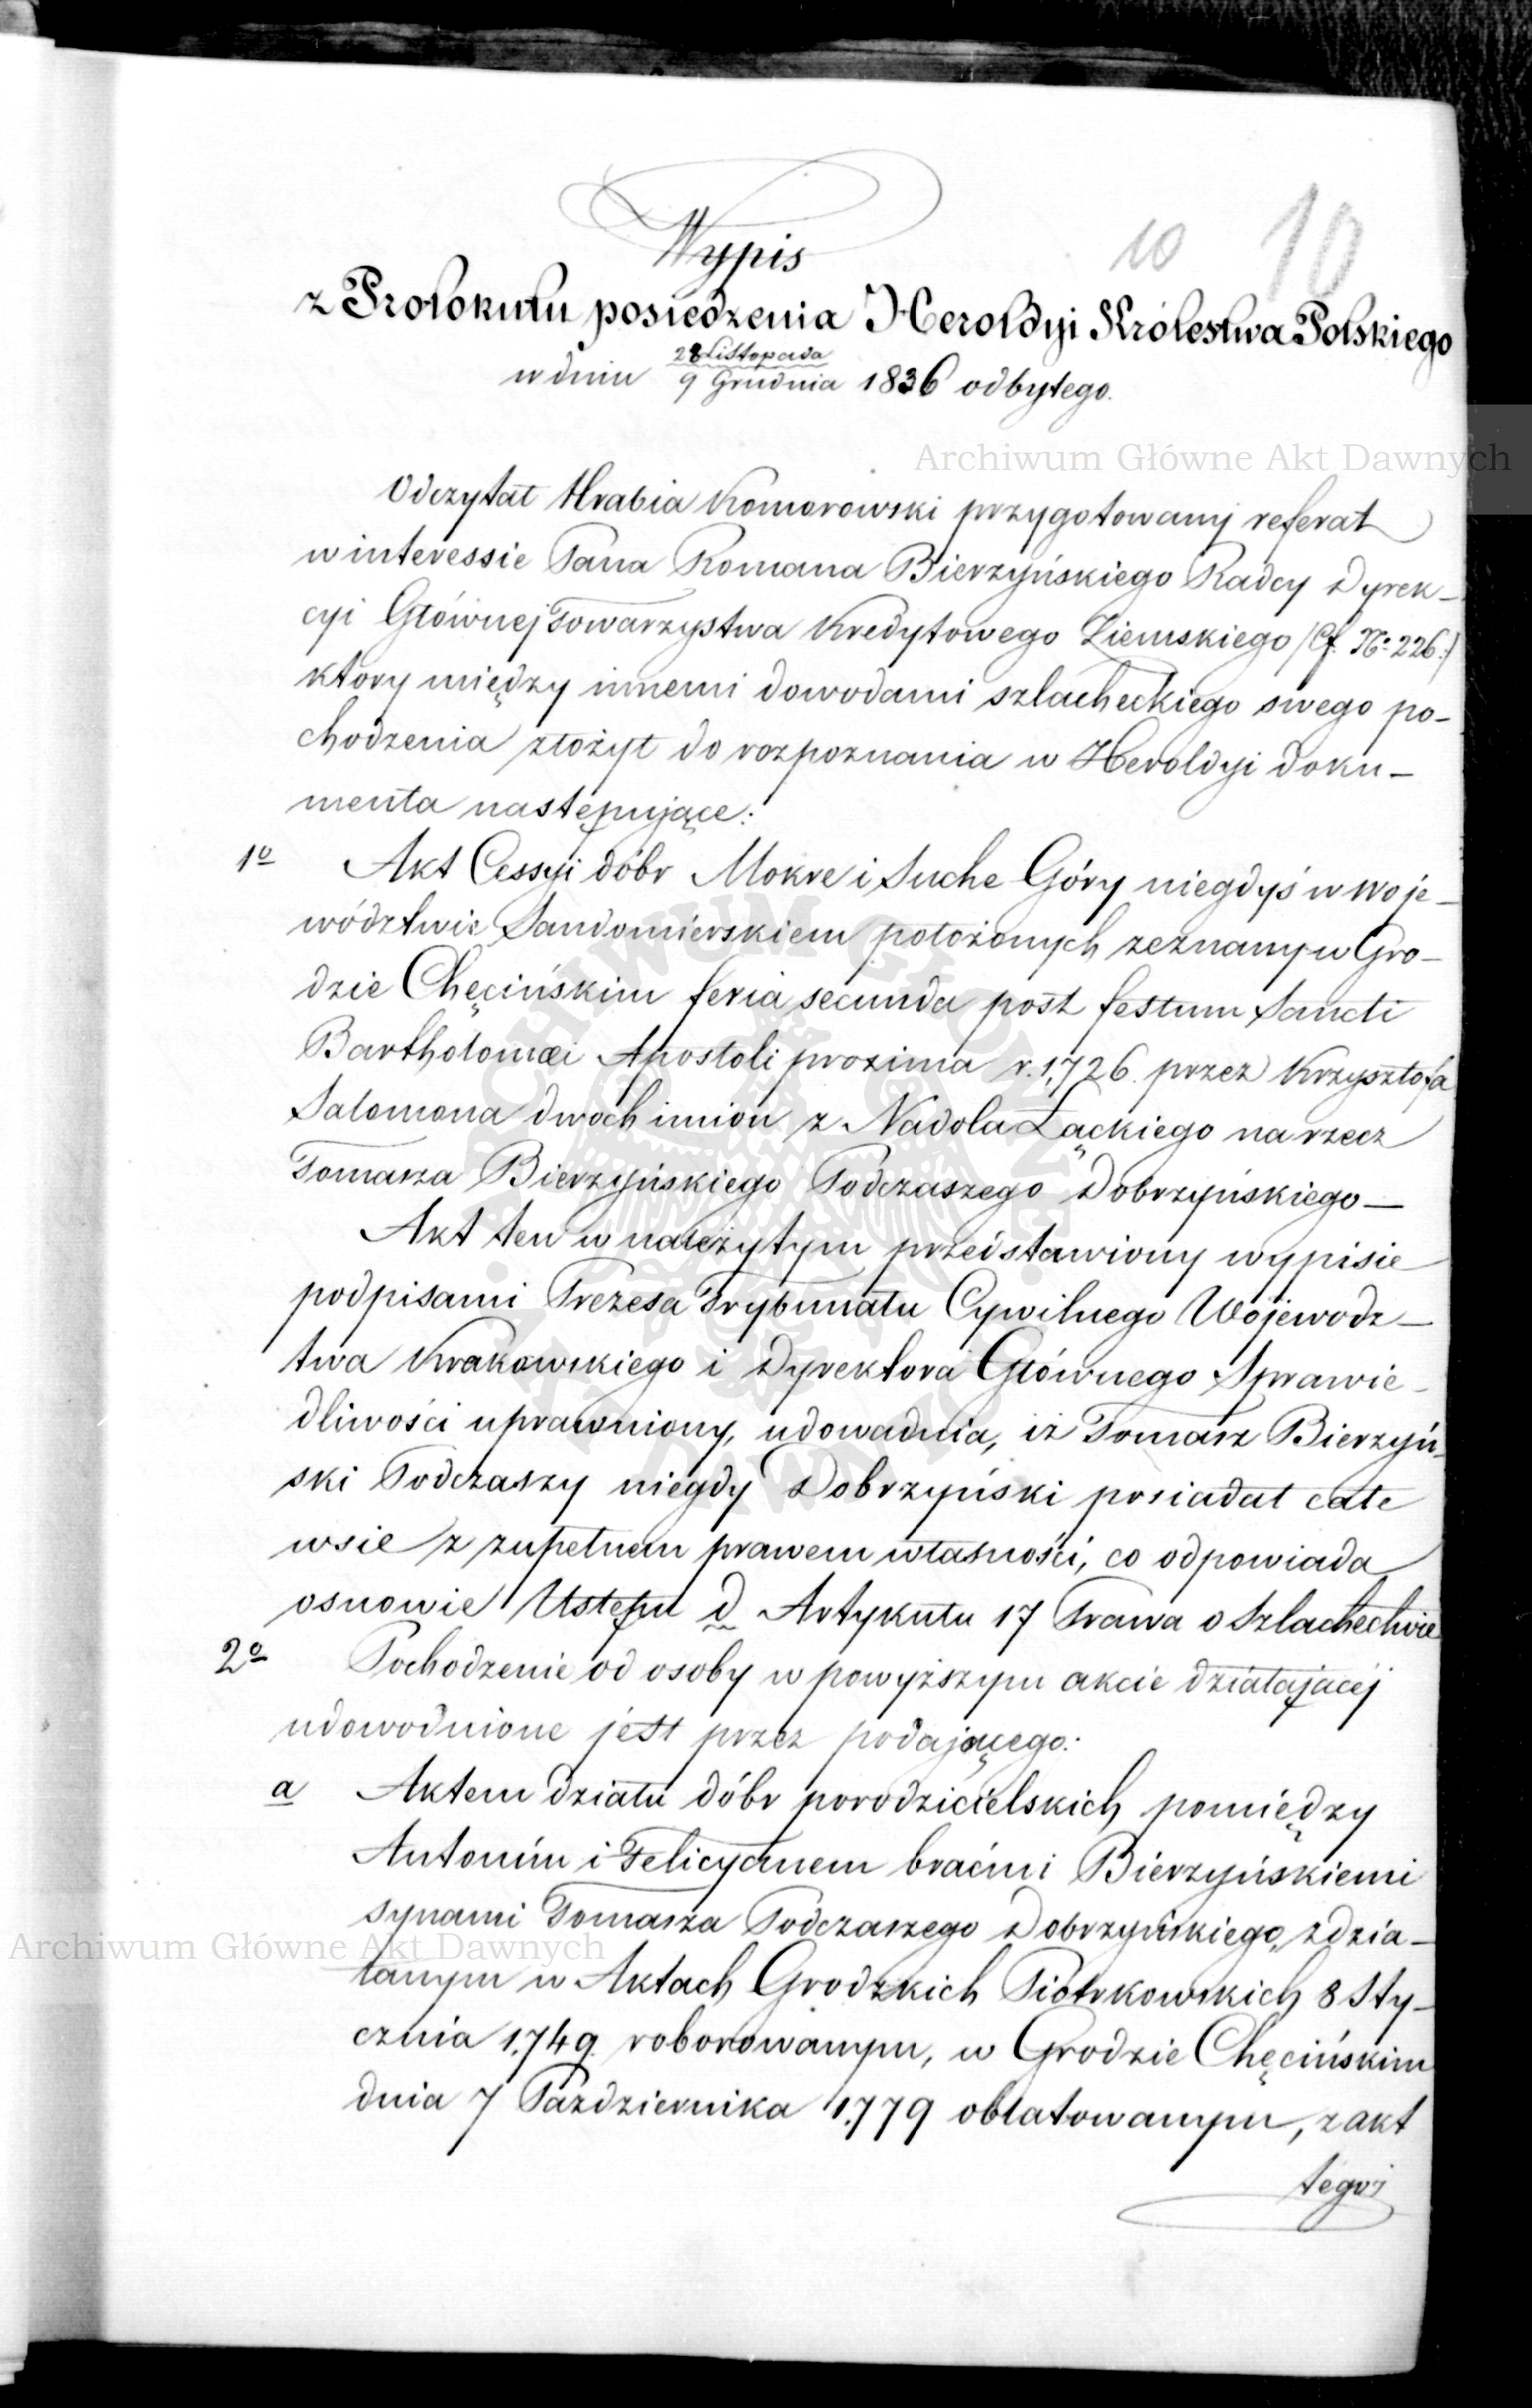 10 10
Wypis
z Protokułu posiedzenia Heroldyi Królestwa Polskiego
w dniu 28 Listopada / 9 Grudnia 1836 odbytego.
Archiwum Główne Akt Dawnych
Odczytał Hrabia Komorowski przygotowany referat
w interessie Pana Romana Bierzyńskiego Radcy Dyrek-
cyi Głównej Towarzystwa Kredytowego Ziemskiego (Cf. No 226.)
ktory między innemi dowodami szlacheckiego swego po-
chodzenia złożył do rozpoznania w Heroldyi doku-
menta następujące:
1o Akt Cessyi dóbr Mokre i Suche Góry niegdyś w Woje-
wództwie Sandomierskiem położonych zeznany w Gro-
dzie Chęcińskim feria secunda post festum Sancti
Bartholomæi Apostoli proxima r. 1726. przez Krzysztofa
Salomona dwoch imion z Nadola Łąckiego na rzecz
Tomasza Bierzyńskiego Podczaszego Dobrzyńskiego—
Akt ten w należytym przedstawiony wypisie
podpisami Prezesa Trybunału Cywilnego Wojewodz-
twa Krakowskiego i Dyrektora Głównego Sprawie-
dliwości uprawniony, udowadnia, iż Tomasz Bierzyń-
ski Podczaszy niegdy Dobrzyński posiadał całe
wsie z zupełnem prawem własności, co odpowiada
osnowie Ustępu d Artykułu 17 Prawa o Szlachectwie
2o Pochodzenie od osoby w powyższym akcie działającéj
udowodnione jest przez podającego:
a Aktem działu dóbr porodzicielskich pomiędzy
Antonim i Felicyanem braćmi Bierzyńskiemi
synami Tomasza Podczaszego Dobrzyńskiego, zdzia-
Archiwum Główne Akt Dawnych
łanym w Aktach Grodzkich Piotrkowskich 8 Sty-
cznia 1749 roborowanym, w Grodzie Chęcińskim
dnia 7 Października 1779 oblatowanym, z akt
tegoż